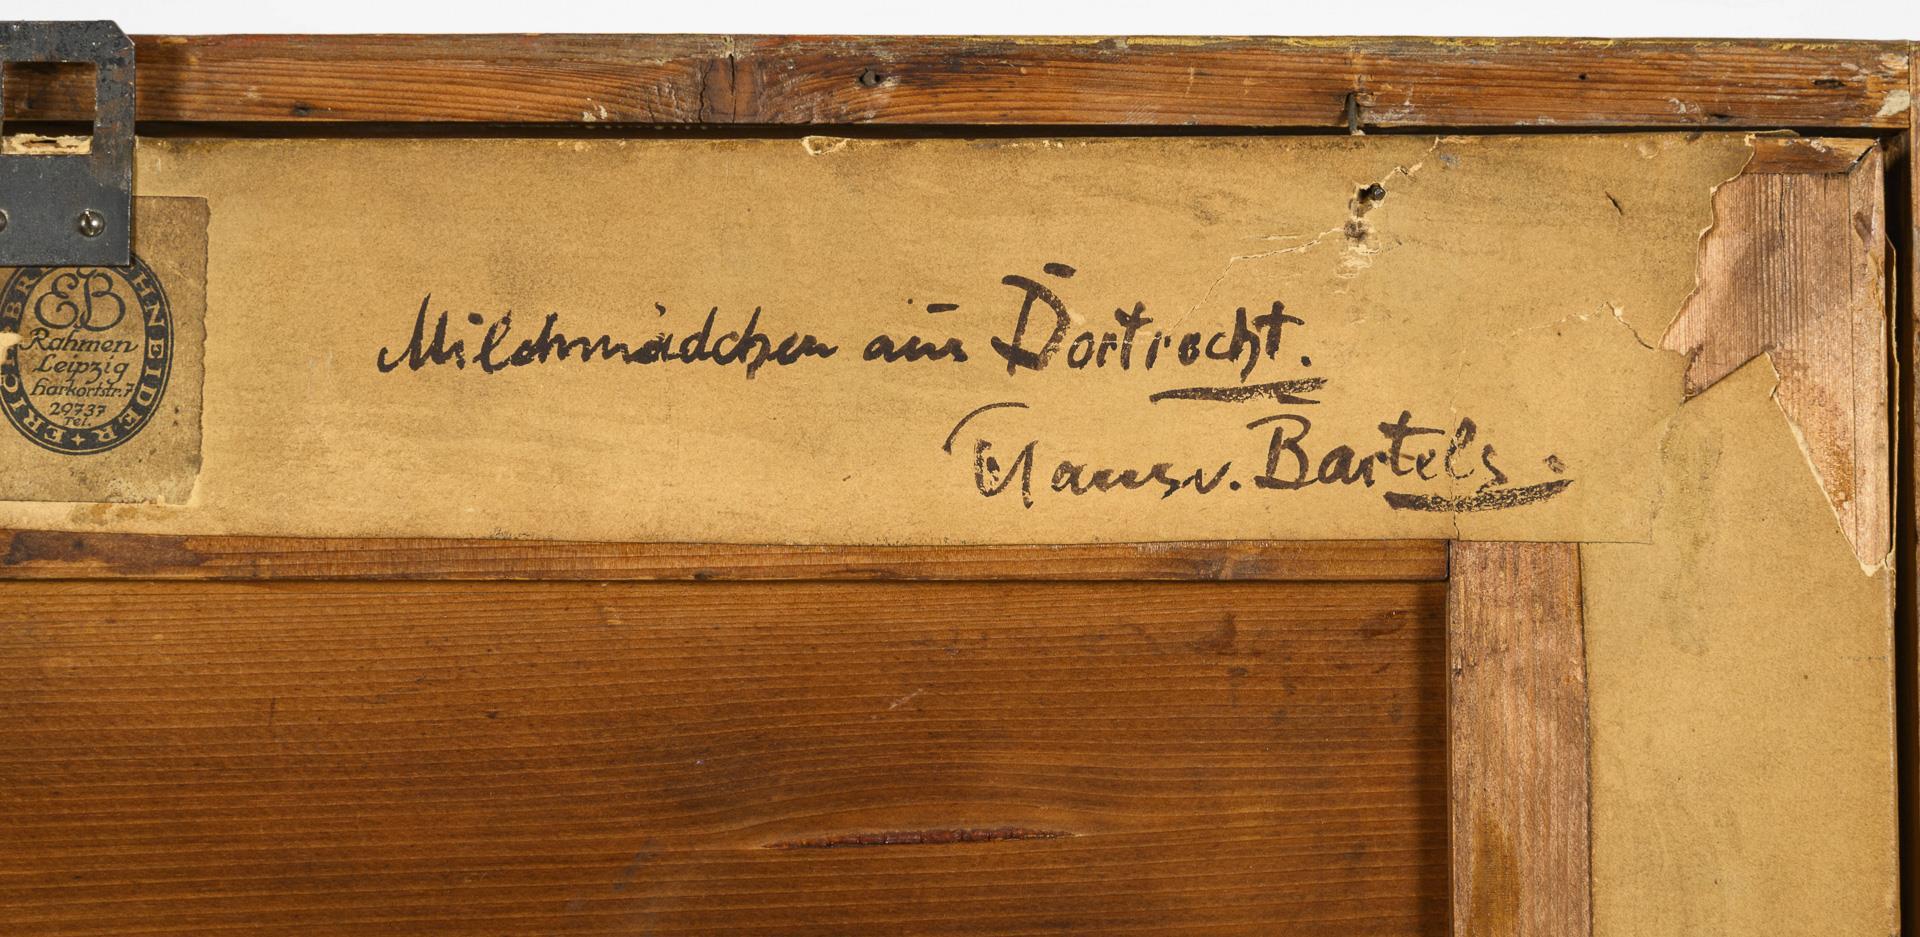 Milchmädchen aus Dortrecht.
Hans v. Bartels.
ERICH BR SCHNEIDER
EB
Rahmen
Leipzig
Harkortstr. 7
29737
Tel.